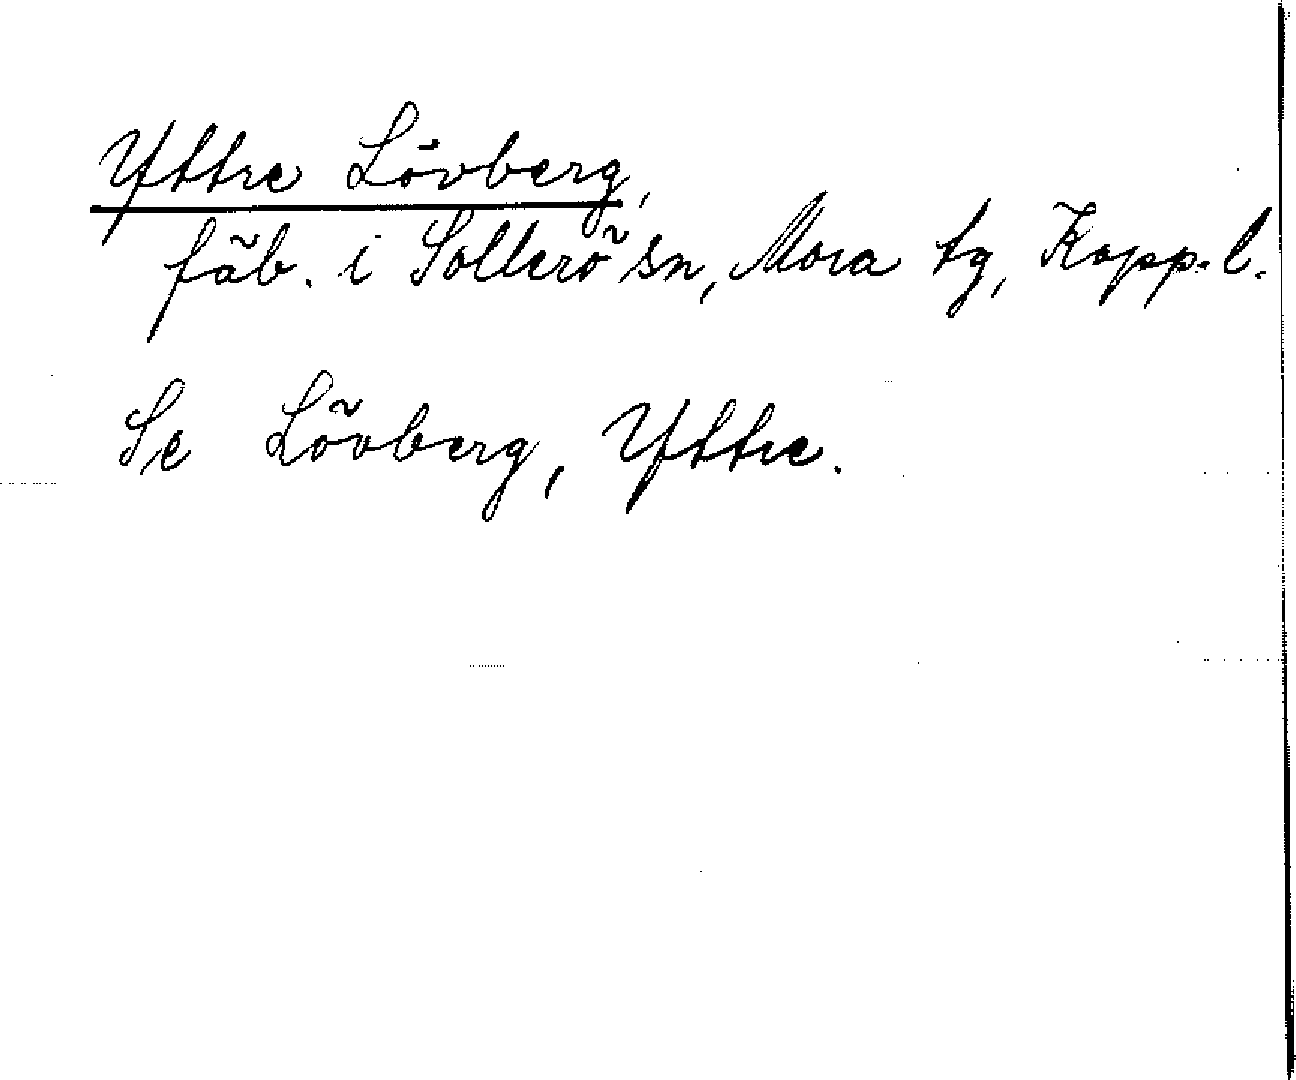 Yttre Lövberg,
fäb. i Sollerö sn, Mora tg, Kopp. l.
Se Lövberg, Yttre.